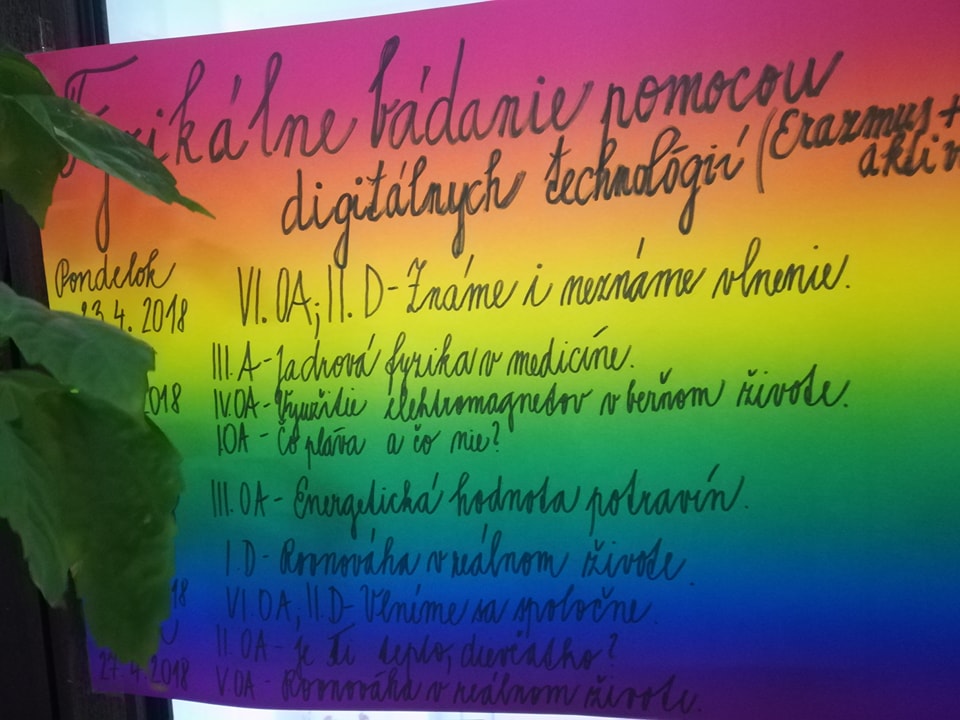 Fyzikálne bádanie pomocou
digitálnych technológií (Erazmus+
aktiv
Pondelok
23.4.2018 VI.OA; II.D - Známe i neznáme vlnenie.
III.A - Jadrová fyzika v medicíne.
2018 IV.OA - Využitie elektromagnetov v bežnom živote.
I.OA - Čo pláva a čo nie?
III.OA - Energetická hodnota potravín.
I D - Rovnováha v reálnom živote.
18 VI.OA, II.D - Vlníme sa spoločne.
II.OA - Je Ti teplo, dievčatko?
27.4.2018 V.OA - Rovnováha v reálnom živote.